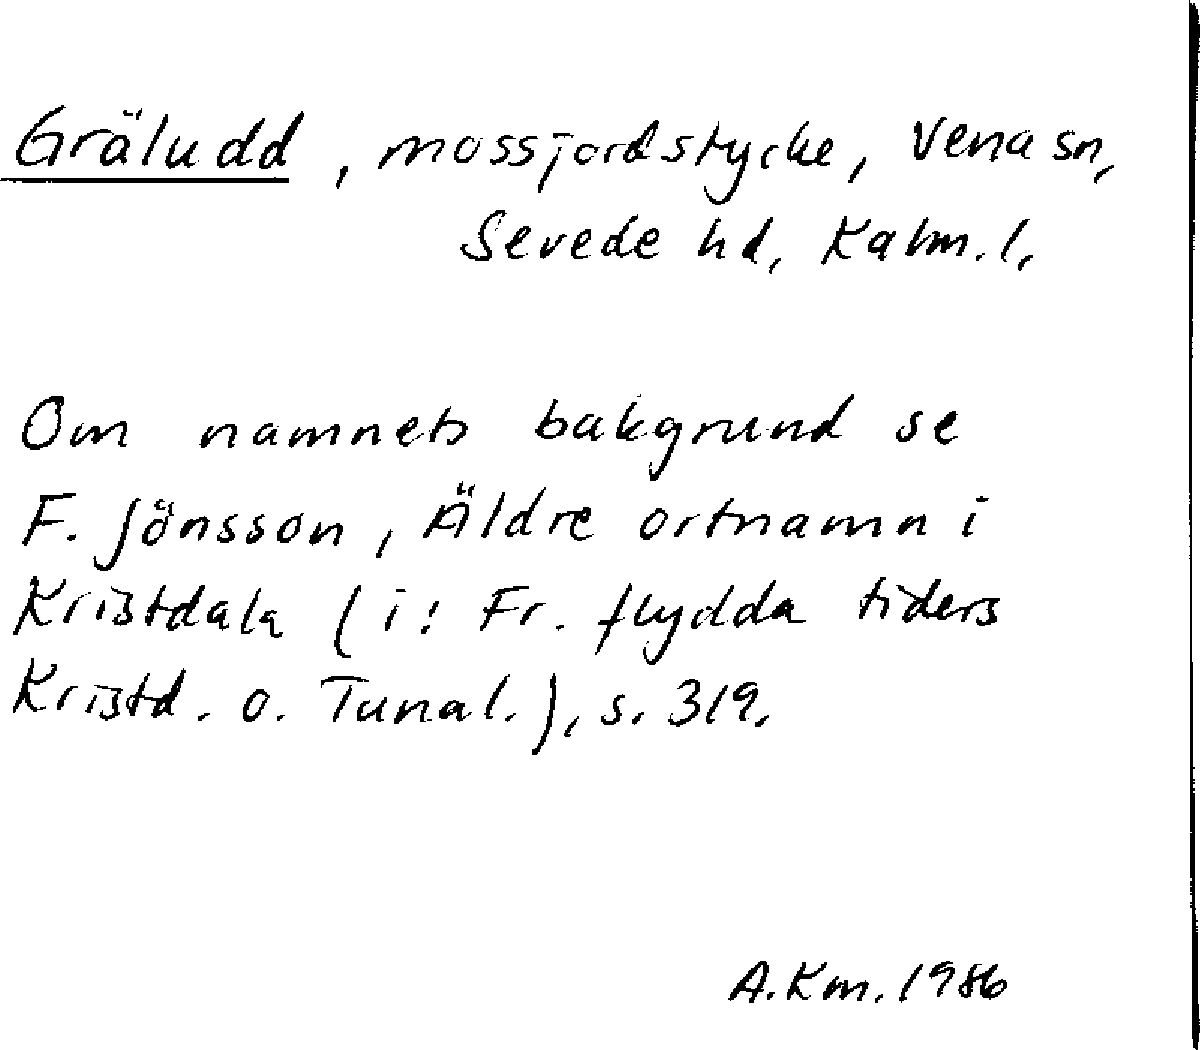 Gräludd, mossjordstycke, Vena sn,
Sevede hd, Kalm. l.
Om namnets bakgrund se
F. Jönsson, Äldre ortnamn i
Kristdala (i: Fr. flydda tiders
Kristd. o. Tunal.), s. 319.
A.Km. 1986